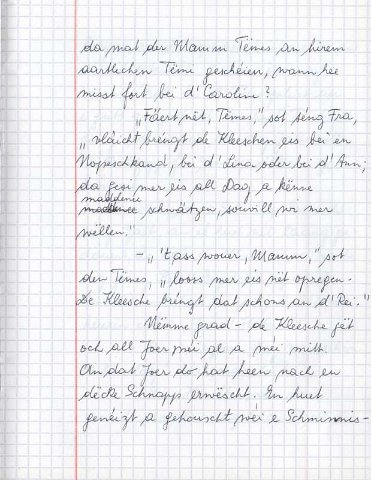 da mat der Mamm Témes an hirem
aartlechen Témi geschéien, wann hee
misst fort bei d'Carolin?
"Fäert nët, Témes," sot séng Fra,
"vläicht bréngt de Kleeschen eis bei en
Nopeschkand, bei d'Lina oder bei d'Ann;
da gesi mer eis all Dag a kënne
matdenee
schwätzen, souvill wi mer
wëllen."
- "'t ass wouer, Mamm," sot
den Témes, "looss mer eis nët opregen.
De Kleesche bréngt dat schons an d'Rei."
Nëmme grad - de Kleesche gët
och all Joer méi al a méi midd.
An dat Joer do hat heen nach en
décke Schnapp erwëscht. En huet
genéizt a gehouscht wéi e Schmimmis-